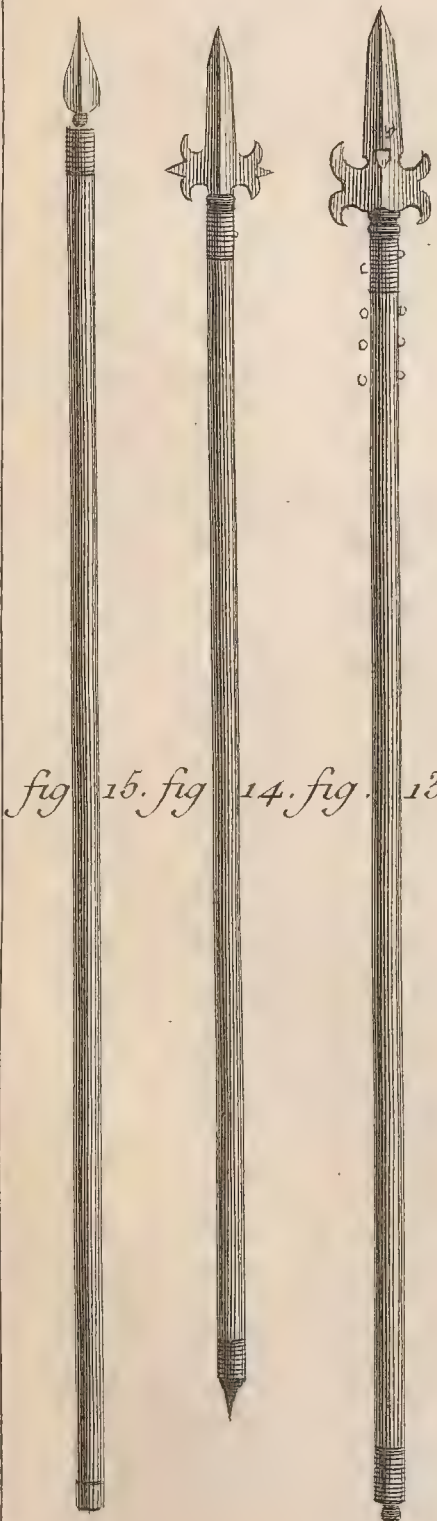 fig 15. fig 14. fig. 13